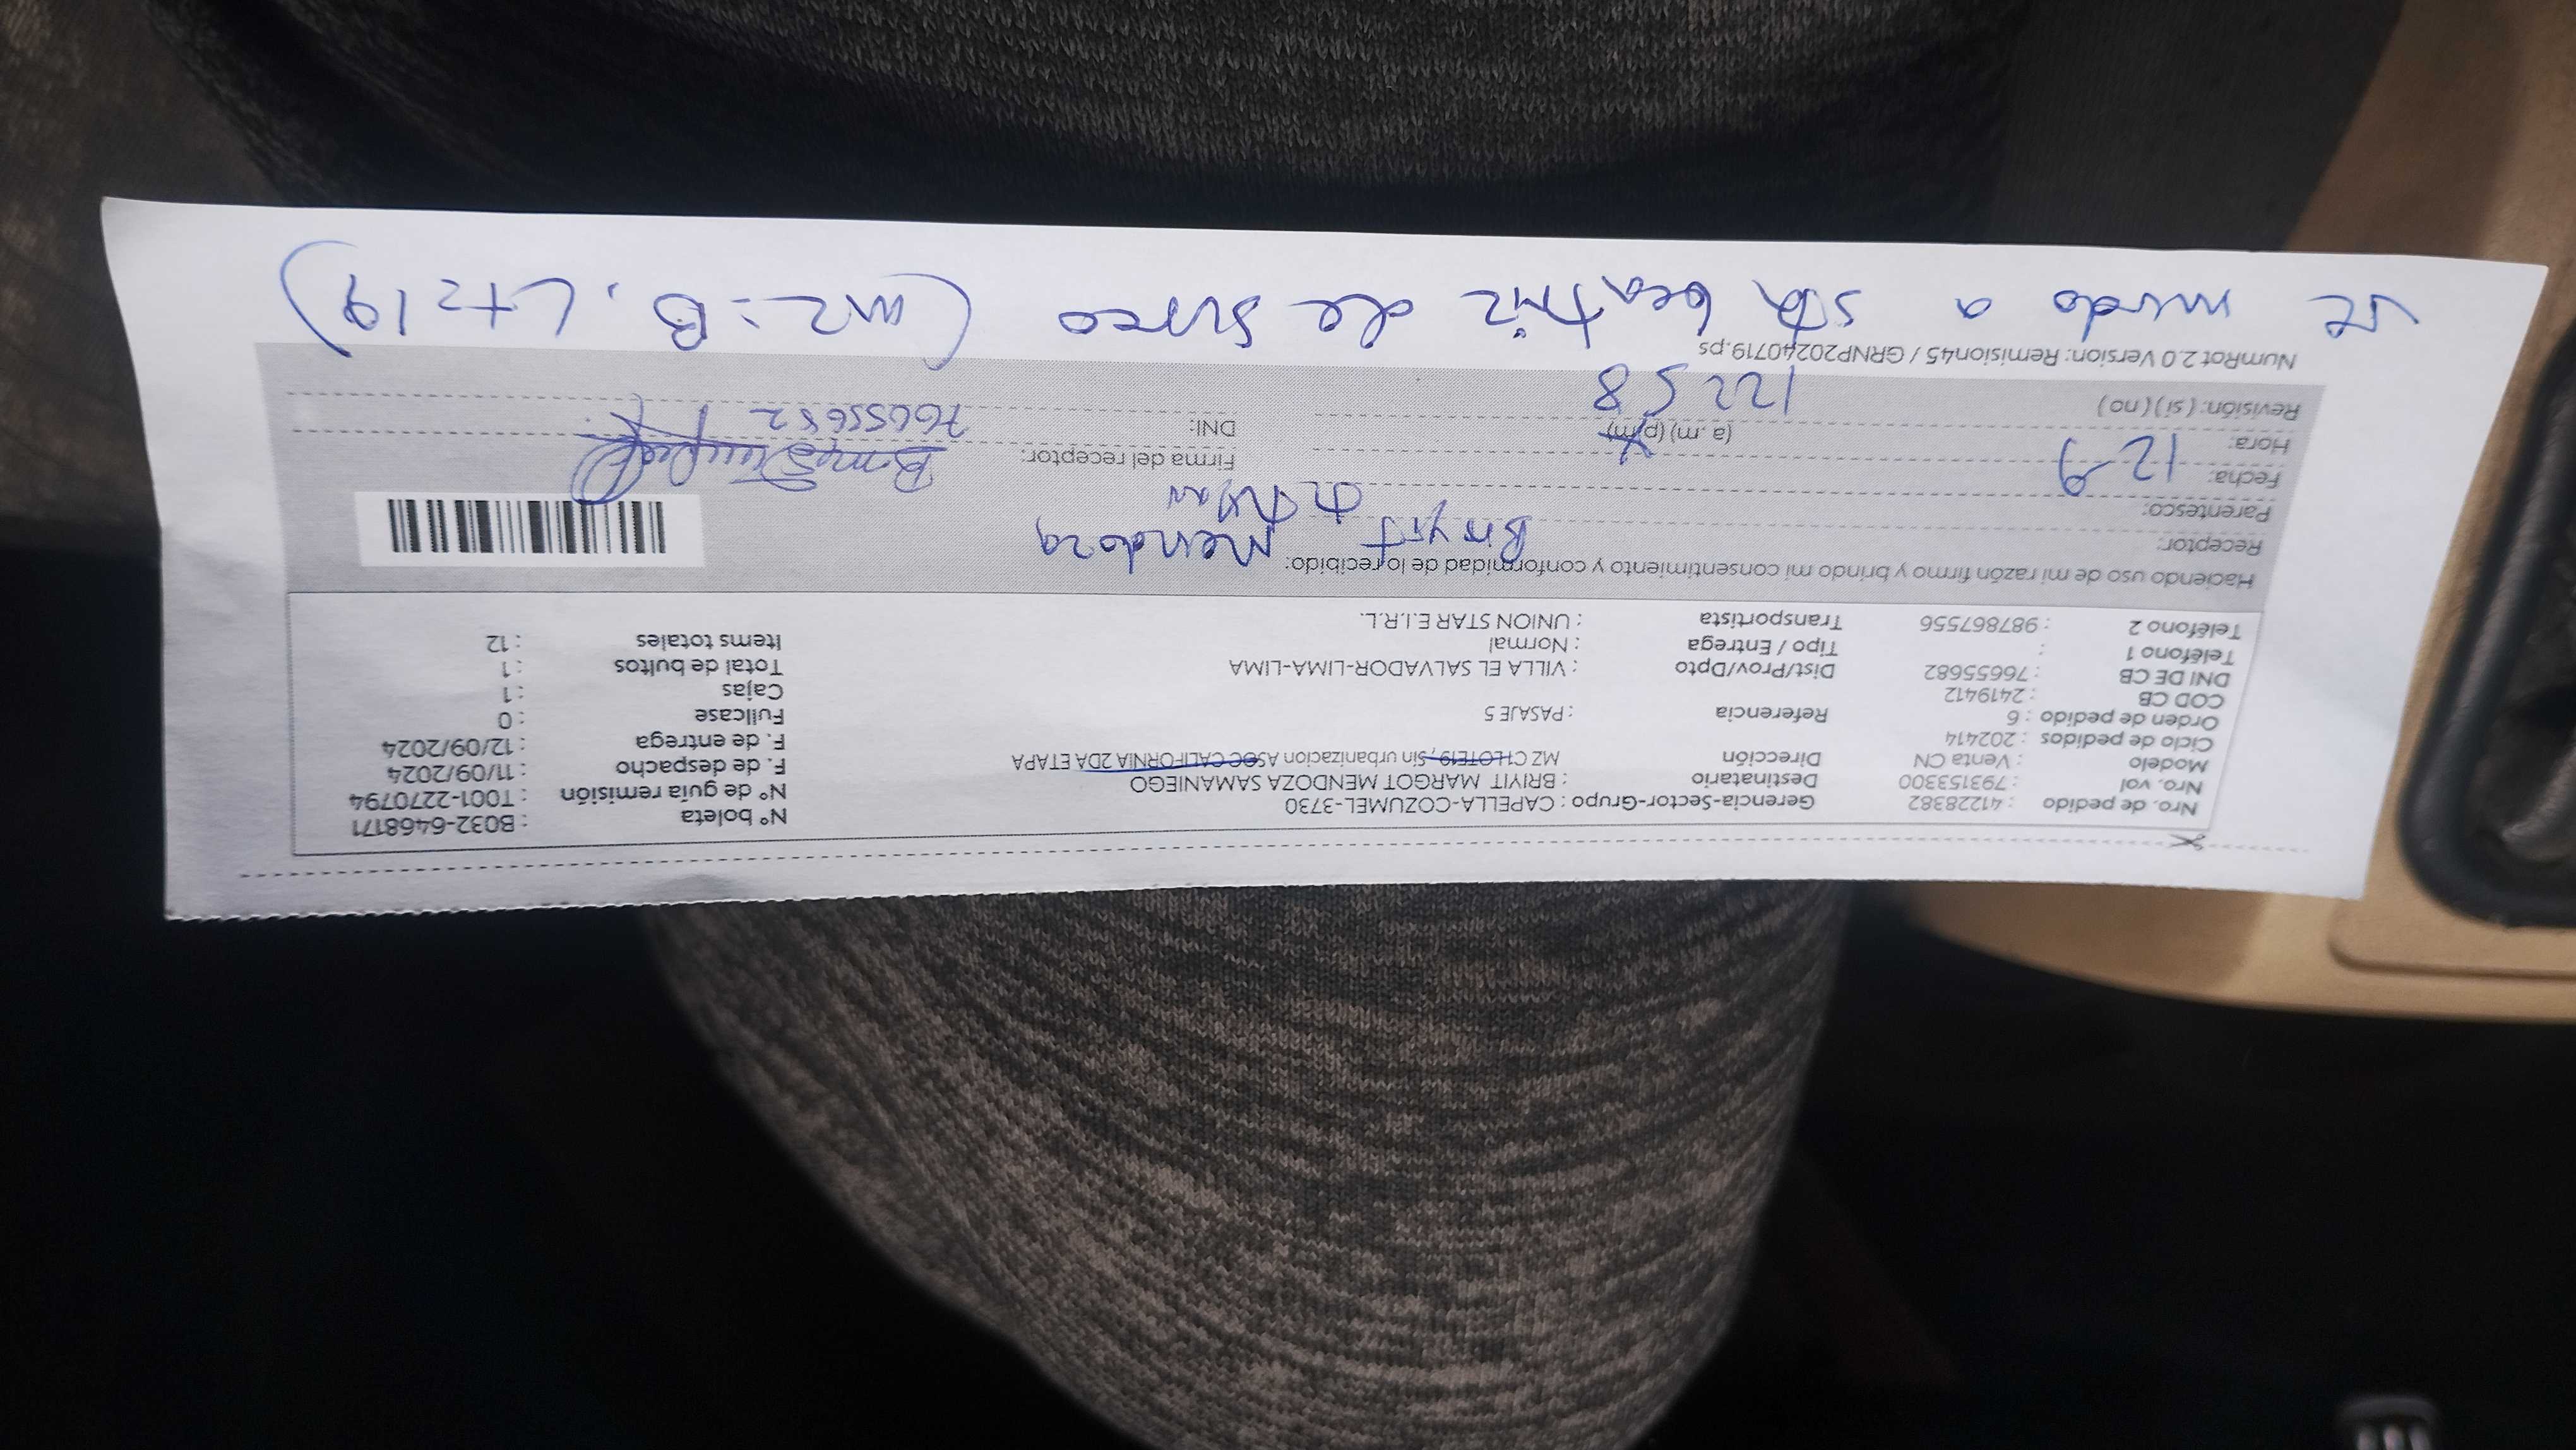 Nro. de pedido : 41228382 Gerencia-Sector-Grupo : CAPELLA-COZUMEL-3730 N° boleta : B032-6468171
Nro. vol : 793153300 Destinatario : BRIYIT MARGOT MENDOZA SAMANIEGO N° de guía remisión : T001-2270794
Modelo : Venta CN Dirección MZ C1 LOTE19, sin urbanizacion ASOC CALIFORNIA 2DA ETAPA F. de despacho : 11/09/2024
Ciclo de pedidos : 202414 F. de entrega : 12/09/2024
Orden de pedido : 6 Referencia : PASAJE 5 Fullcase : 0
COD CB : 2419412 Cajas : 1
DNI DE CB : 76655682 Dist/Prov/Dpto : VILLA EL SALVADOR-LIMA-LIMA Total de bultos : 1
Teléfono 1 : Tipo / Entrega : Normal Items totales : 12
Teléfono 2 : 987867556 Transportista : UNION STAR E.I.R.L.
Haciendo uso de mi razón firmo y brindo mi consentimiento y conformidad de lo recibido:
Receptor: Mendoza
Parentesco:
Fecha: 12-9 Firma del receptor:
Hora: (a.m.) (p.m) DNI: 76655682
Revisión: (si) (no) 12258
NumRot 2.0 Version: Remisión45 / GRNP20240719.ps
se mudo a sta beatriz de surco (mz: B, Lt=19)